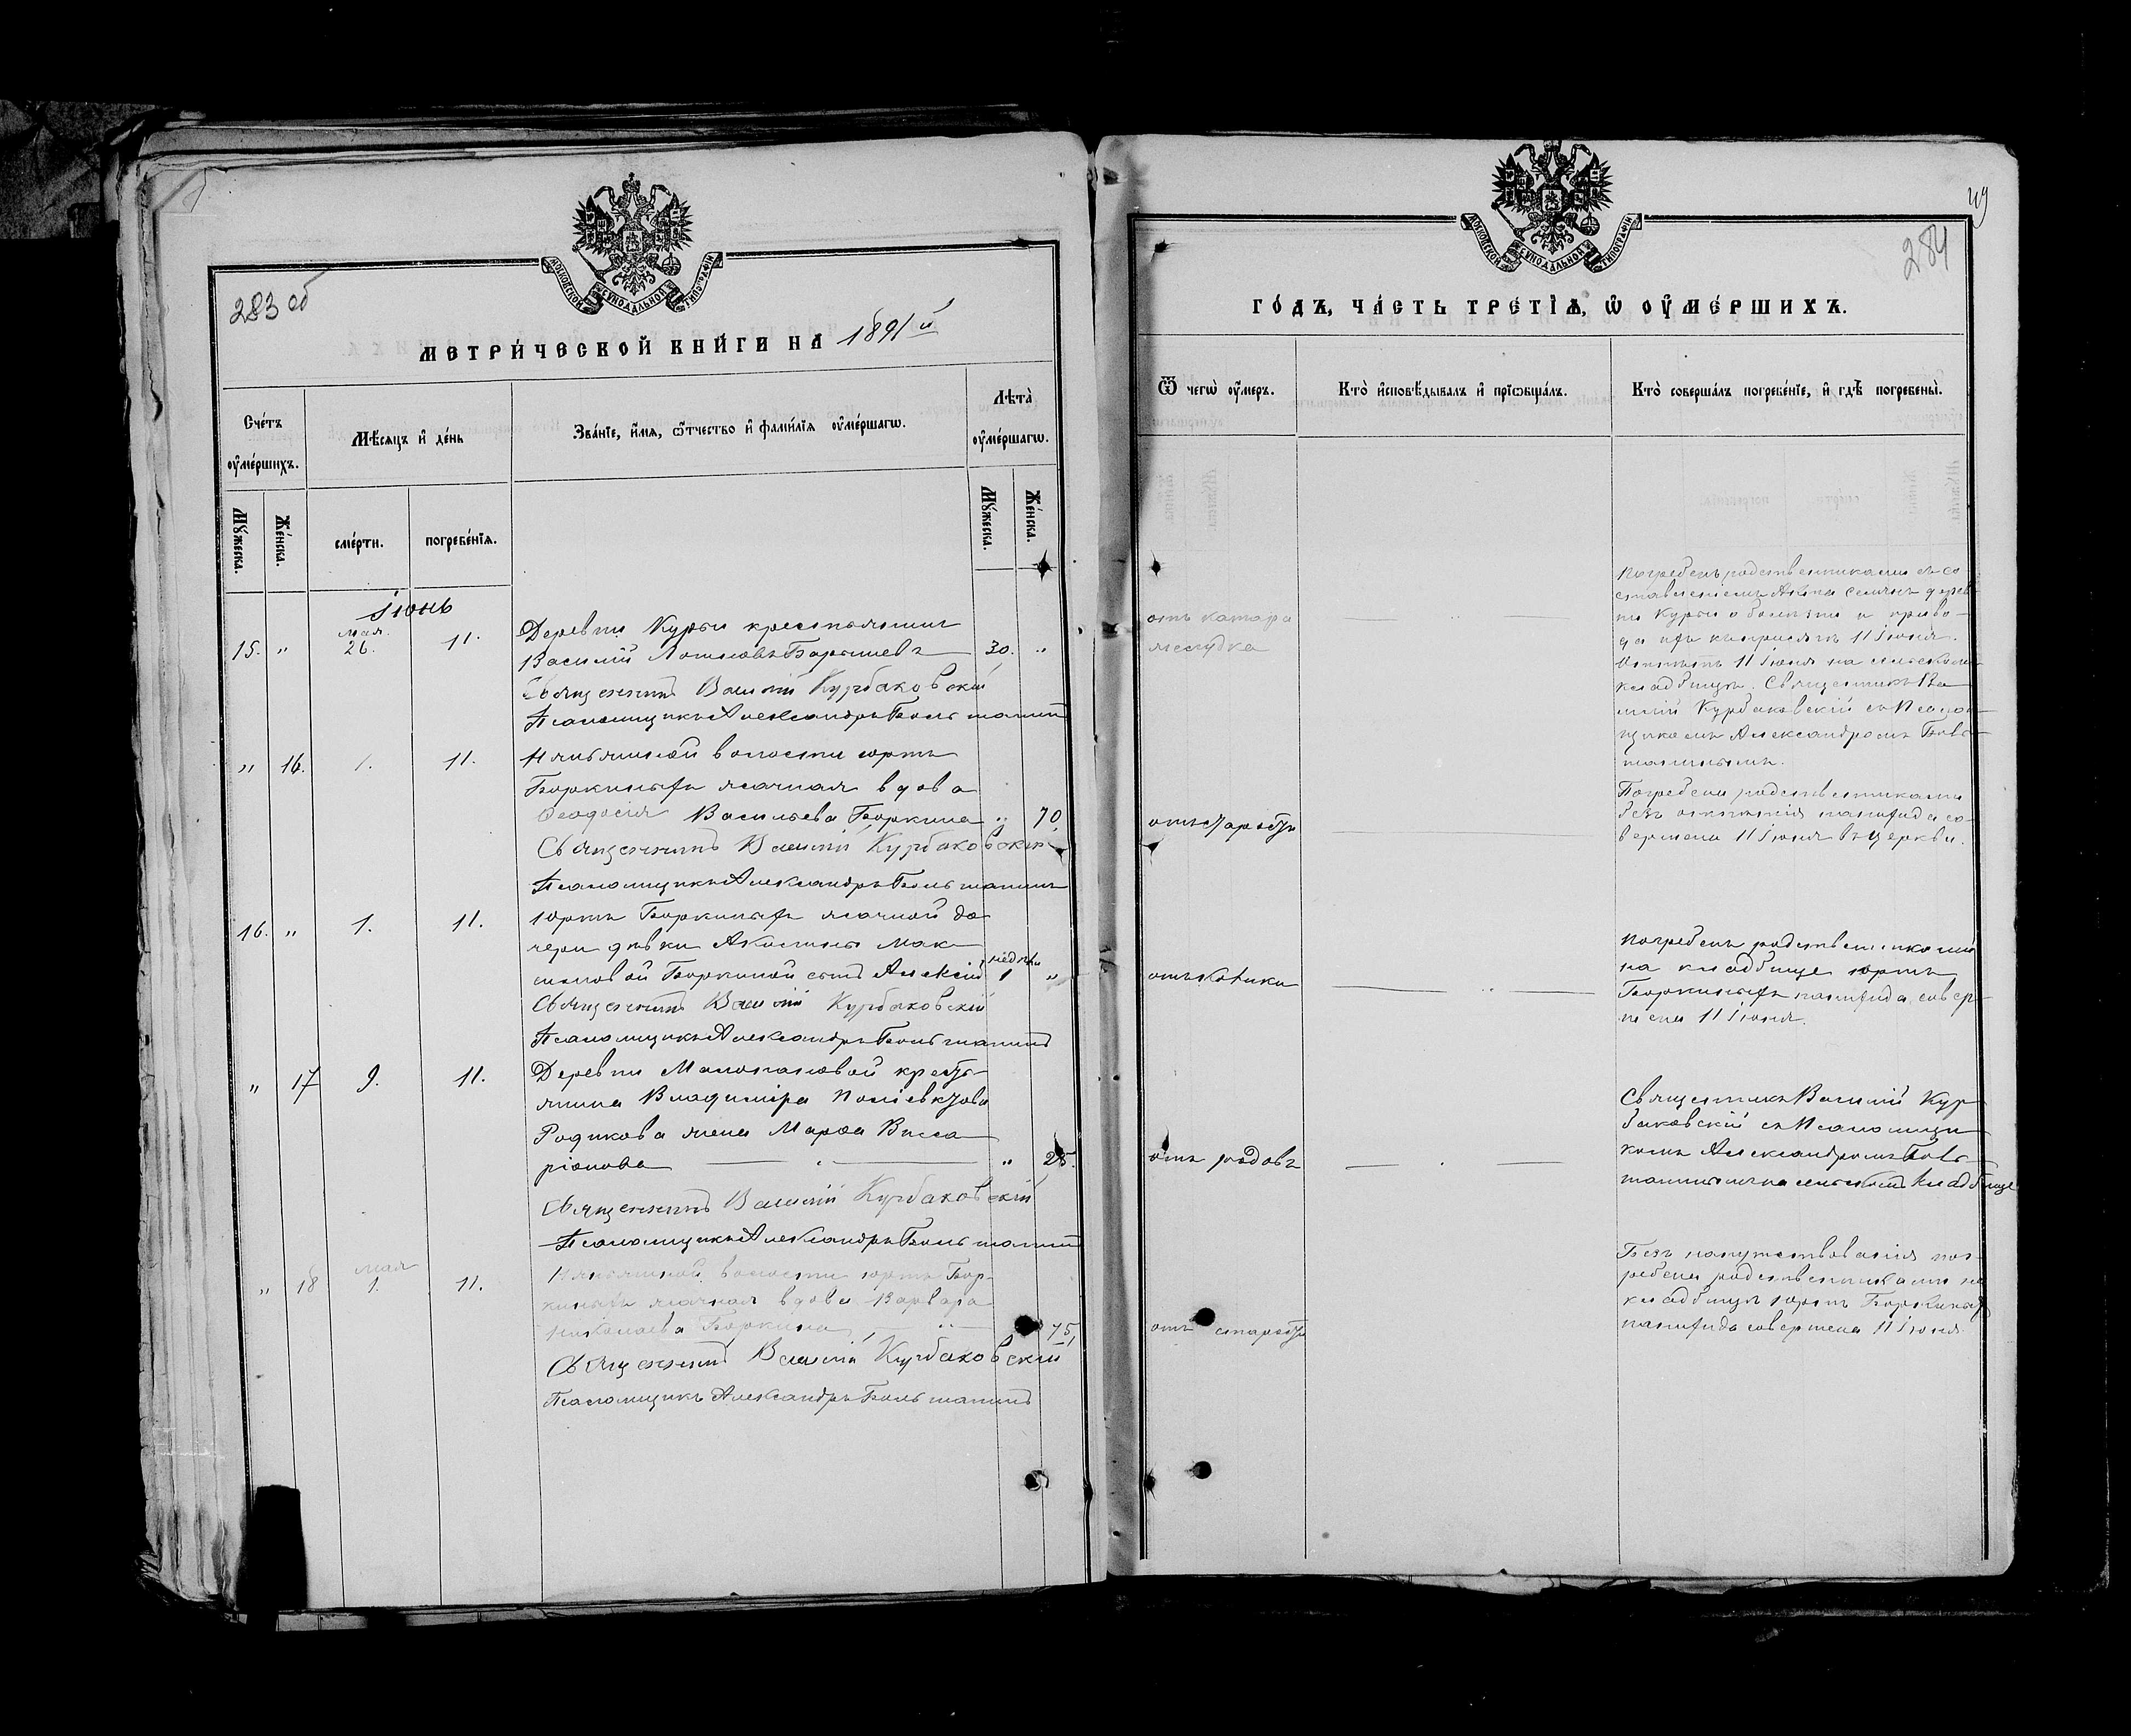 283 об
МОСКОВСКОЙ СѴНОДАЛЬНОЙ ТИПОГРАФІИ
МЕТРИ́ЧЕСКОЙ КНИ́ГИ НА 1891й
Сче́тъ ᲂу҆ме́ршихъ.
Мѣ́сяцъ и҆ де́нь
Зва́нїе, и҆́мя, ѻ҆́тчество и҆ фами́лїя ᲂу҆ме́ршагѡ.
Лѣ́та ᲂу҆ме́ршагѡ.
Мꙋ́жеска.
Же́нска.
сме́рти.
погребе́нїѧ.
Мꙋ́жеска.
Же́нска.
Іюнь
15. " мая 26. 11.
Деревни Курьи крестьянинъ
Василій Барышевъ 30. "
Священникъ Василій Курбаковскій
Псаломщикъ Александръ Большанинъ
" 16. 1. 11.
волости юртъ
Боркиныхъ ясачная вдова
Ѳеодосія Васильева Боркина " 70.
Священникъ Василій Курбаковскій
Псаломщикъ Александръ Большанинъ
16. " 1. 11.
Юртъ Боркиныхъ ясачной до
чери дѣвки Акилины Мак
симовой Боркиной сынъ Алексій недѣли 1 "
Священникъ Василій Курбаковскій
Псаломщикъ Александръ Большанинъ
" 17 9. 11.
Деревни кресть
янина Владиміра Поліевктова
Родикова жена Марѳа Висса
ріонова " 25.
Священникъ Василій Курбаковскій
Псаломщикъ Александръ Большанинъ
" 18 мая 1. 11.
волости юртъ Бор-
киныхъ ясачная вдова Варвара
Николаева Боркина 75,
Священникъ Василій Курбаковскій
Псаломщикъ Александръ Большанинъ
49
284
МОСКОВСКОЙ СѴНОДАЛЬНОЙ ТИПОГРАФІИ
ГО́ДЪ, ЧА́СТЬ ТРЕ́ТЇѦ, Ѡ҆ ОУ҆МЕ́РШИХЪ.
Ѿ чегѡ̀ ᲂу҆́меръ.
Кто̀ и҆сповѣ́дывалъ и҆ прїѡбща́лъ.
Кто̀ соверша́лъ погребе́нїе, и҆ гдѣ̀ погребены̀.
отъ катара
желудка
Погребенъ родственниками съ со
ставленіемъ Акта дерев
ни Курьи о
11 Іюня.
Отпѣтъ 11 Іюня на сельскомъ
кладбищѣ. Священникъ Ва
силій Курбаковскій съ Псалом
щикомъ Александромъ Боль
шанинымъ.
отъ старости
Погребена родственниками
безъ отпѣтія панихида со
вершена 11 Іюня въ церкви.
отъ колики
Погребенъ родственниками
на кладбище юртъ
Боркиныхъ панихида совер
шена 11 Іюня.
отъ родовъ
Священникъ Василій Кур
баковскій съ Псаломщи
комъ Александромъ Боль
шанинымъ на сельскомъ кладбище
отъ старости
Безъ напутствованія пог
ребена родственниками на
кладбищѣ юртъ Боркиныхъ
панихида совершена 11 Іюня.